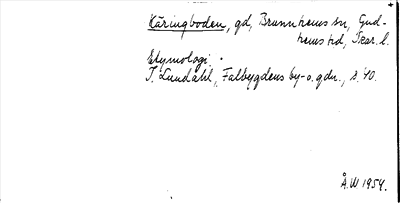 Käringboden, gd, Brunnhems sn, Gud-
hems hd, Skar. l.
Etymologi.
I. Lundahl, Falbygdens by- o. gdn., s. 40.
Å.W 1954.